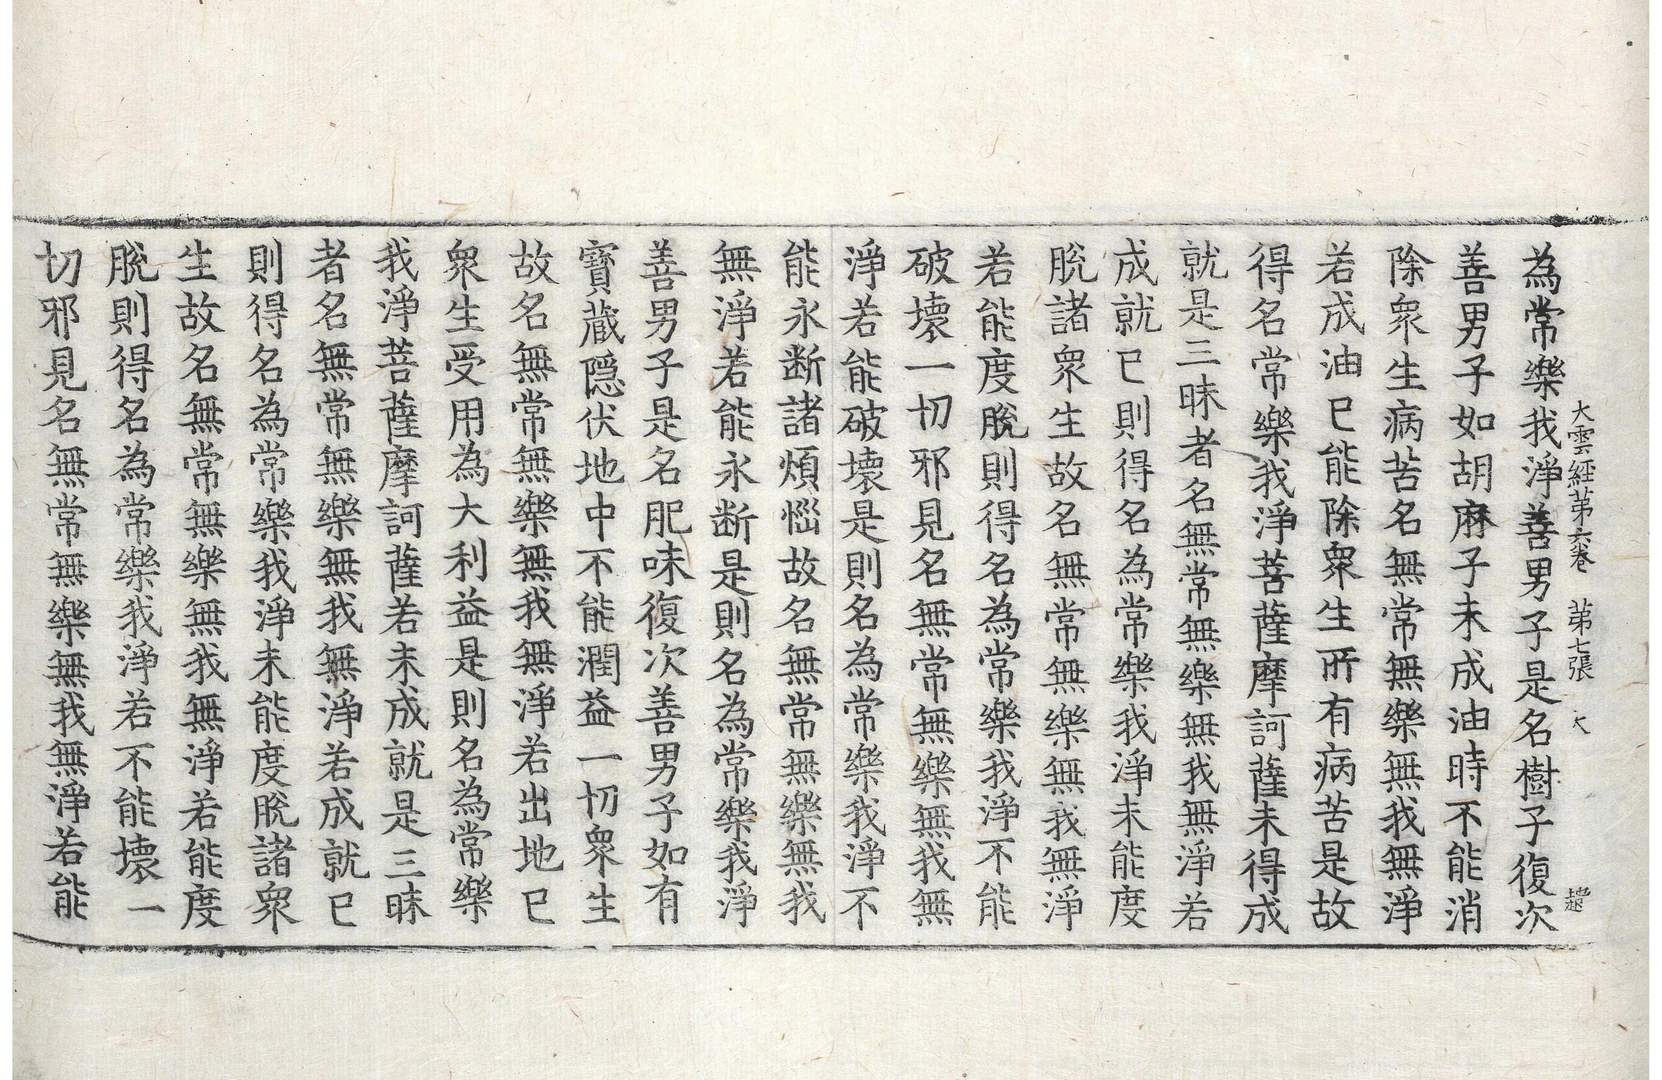 大雲經第六卷　第七張　大
為常樂我淨善男子是名樹子復次
善男子如胡麻子未成油時不能消
除衆生病苦名無常無樂無我無淨
若成油已能除衆生所有病苦是故
得名常樂我淨菩薩摩訶薩未得成
就是三昧者名無常無樂無我無淨若
成就已則得名為常樂我淨未能度
脫諸衆生故名無常無樂無我無淨
若能度脫則得名為常樂我淨不能
破壞一切邪見名無常無樂無我無
淨若能破壞是則名為常樂我淨不
能永断諸煩惱故名無常無樂無我
無淨若能永断是則名為常樂我淨
善男子是名肥味復次善男子如有
寶藏隱伏地中不能潤益一切衆生
故名無常無樂無我無淨若出地已
衆生受用為大利益是則名為常樂
我淨菩薩摩訶薩若未成就是三昧
者名無常無樂無我無淨若成就已
則得名為常樂我淨未能度脫諸衆
生故名無常無樂無我無淨若能度
脫則得名為常樂我淨若不能壞一
切邪見名無常無樂無我無淨若能